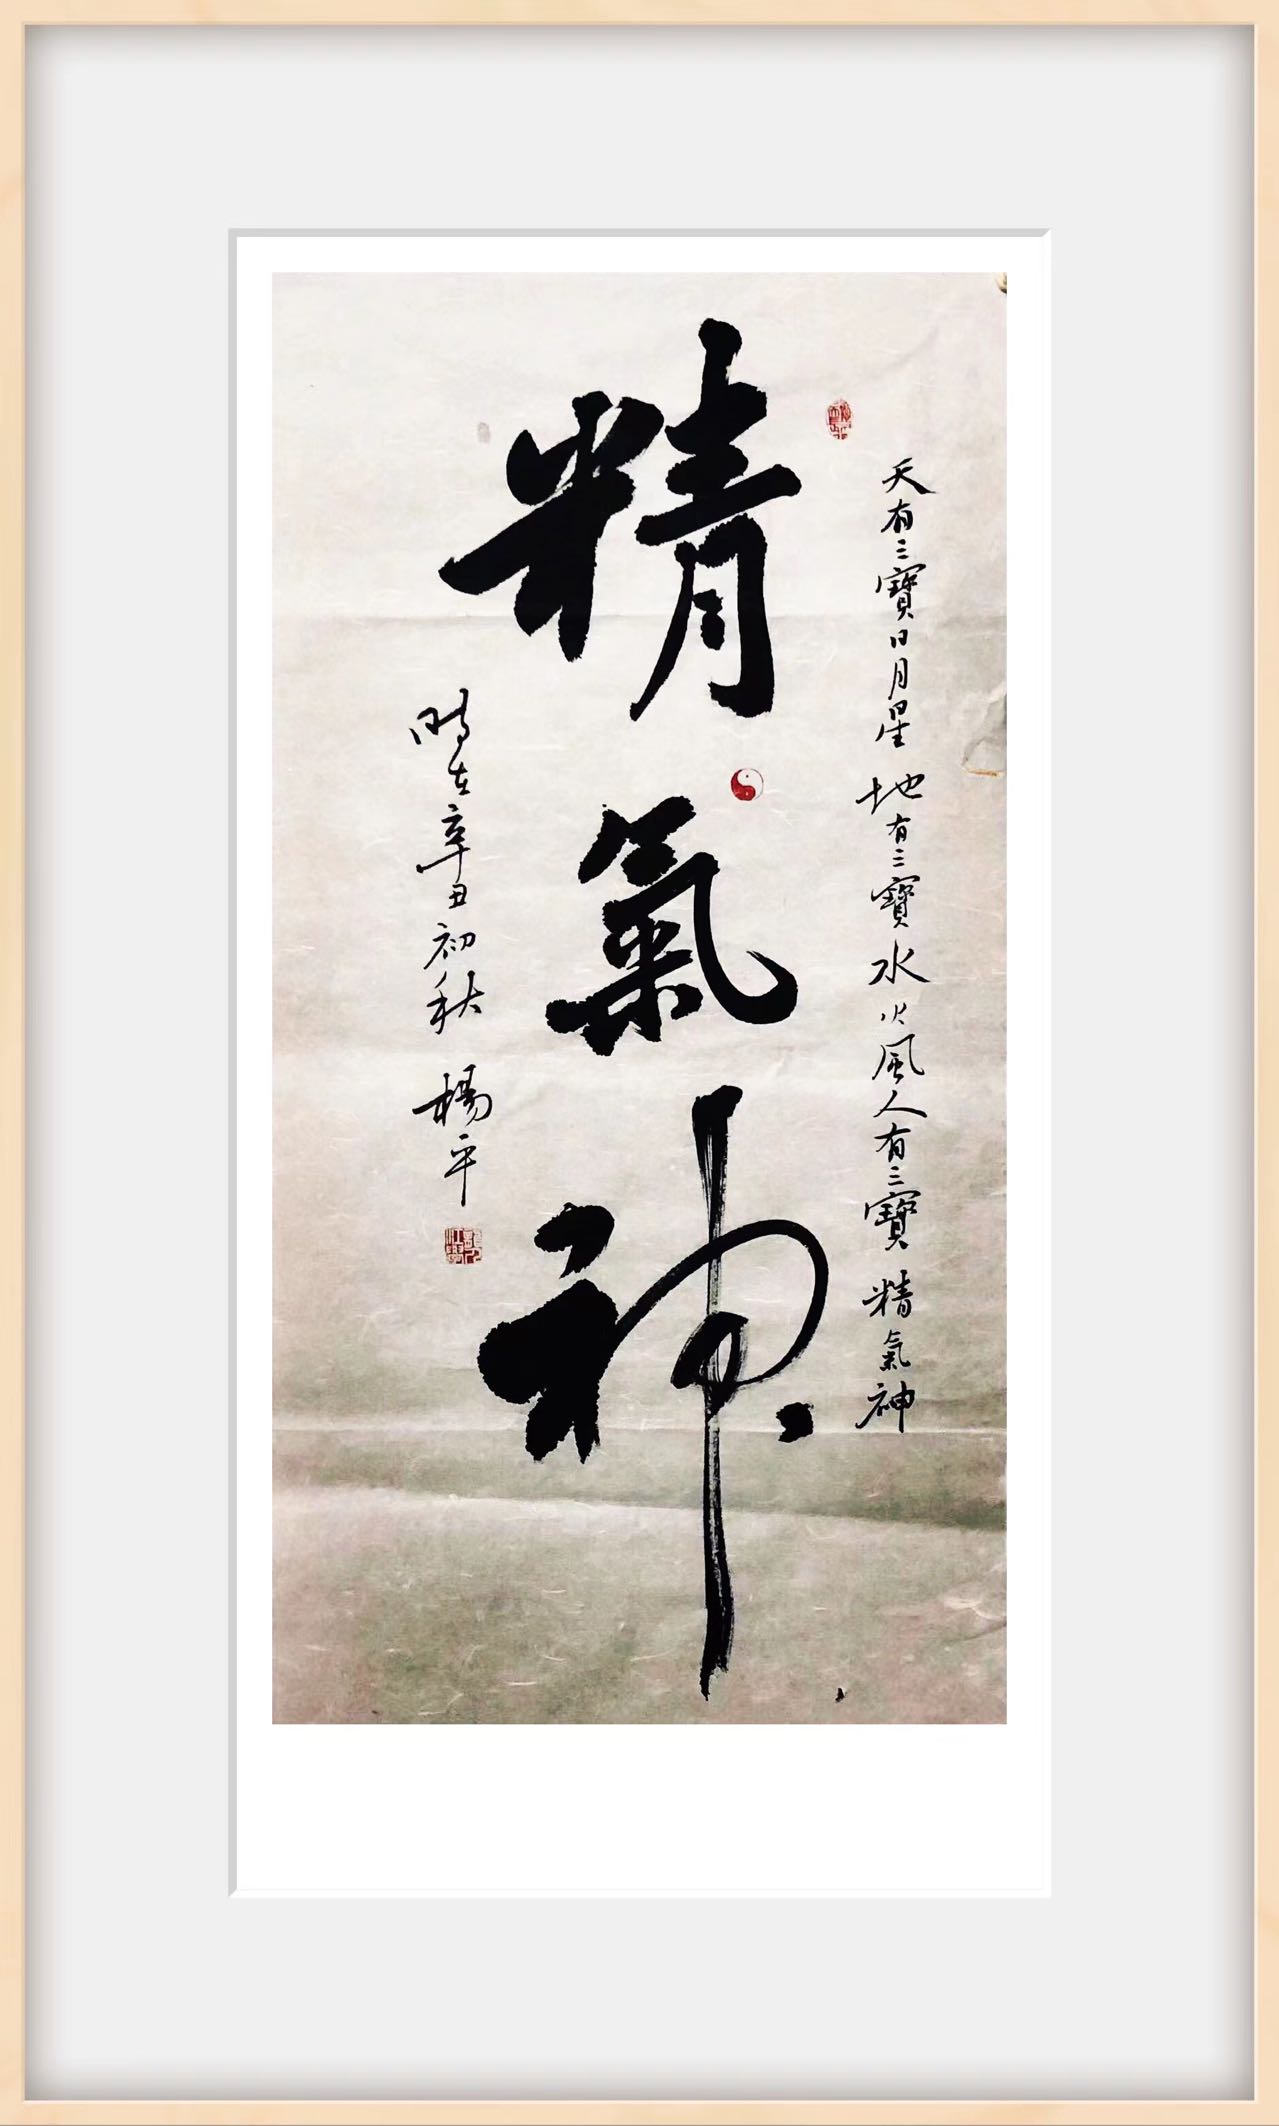 天有三寶日月星 地有三寶水火風人有三寶 精氣神
精氣神
時在辛丑初秋 楊平